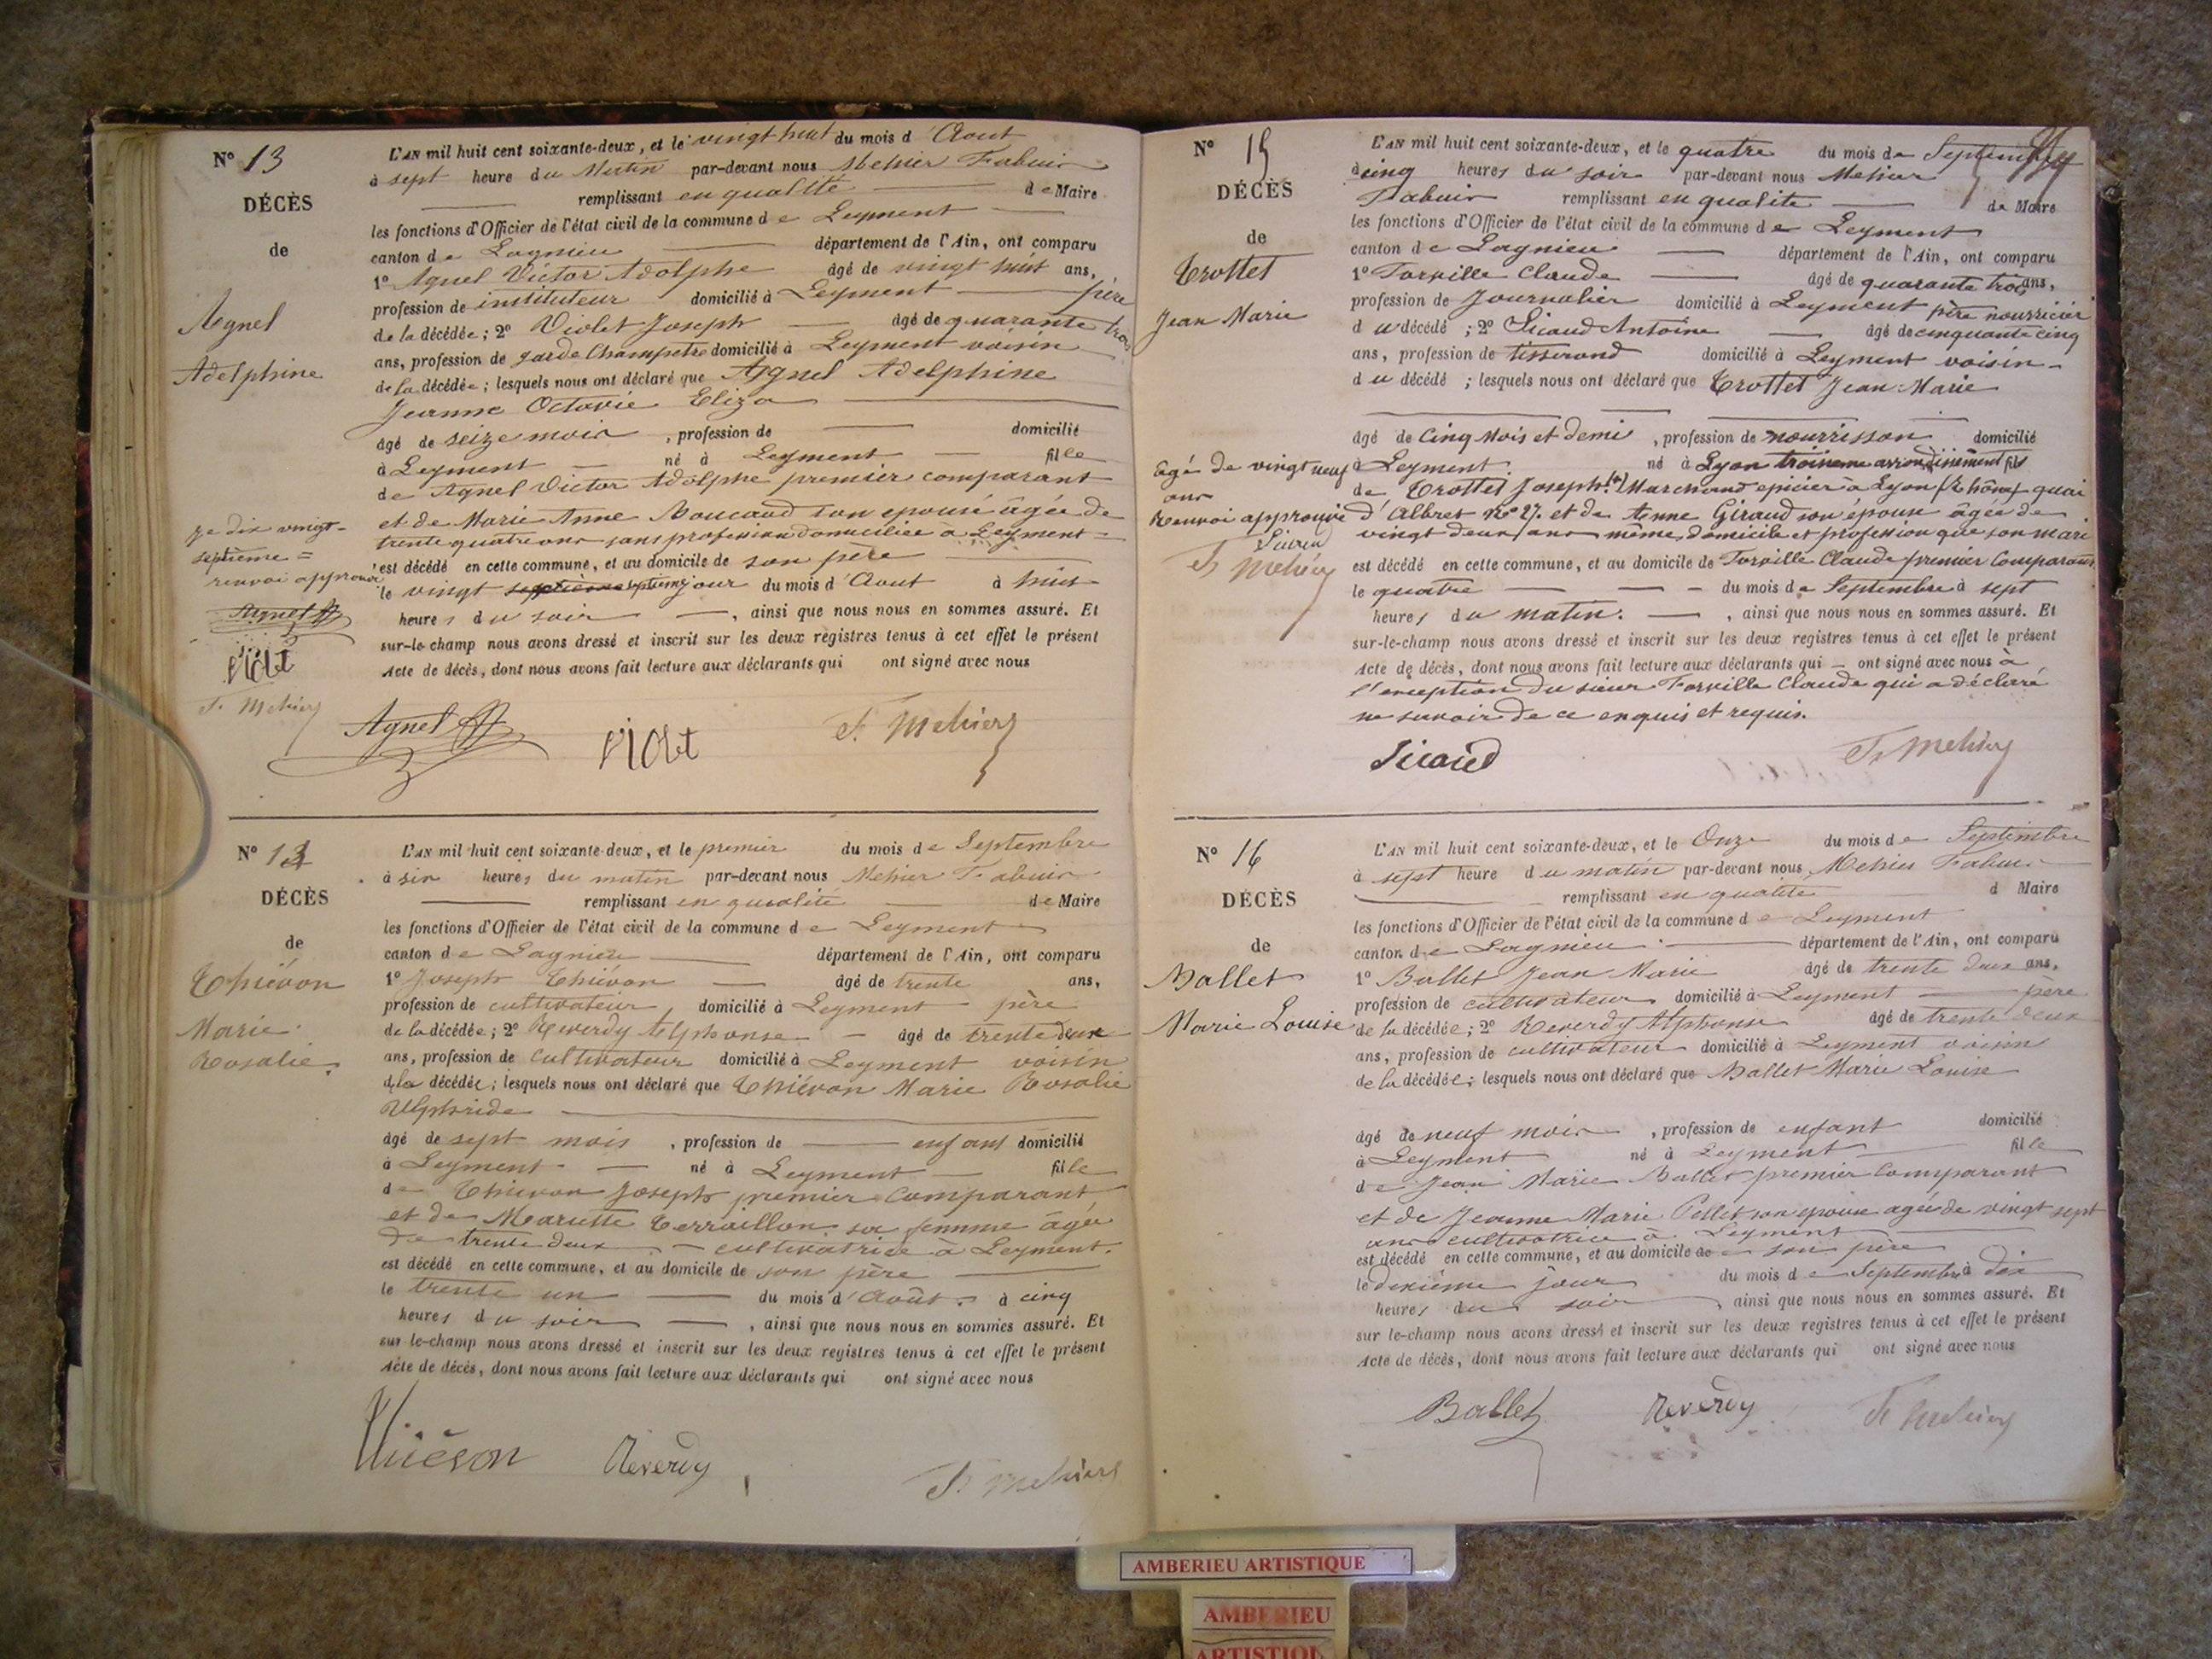 N° 13
DÉCÈS
de
Agnel
Adelphine
je dis vingt-
septième =
renvoi approuvé
Agnel
Violet
F. Mehier
L'AN mil huit cent soixante-deux, et le vingt huit du mois d'Aout
à sept heure du Matin par-devant nous Mehier Fabien
remplissant en qualité de Maire
les fonctions d'Officier de l'état civil de la commune de Leyment
canton de Lagnieu département de l'Ain, ont comparu
1° Agnel Victor Adolphe âgé de vingt huit ans,
profession de instituteur domicilié à Leyment père
de la décédée; 2° Violet Joseph âgé de quarante trois
ans, profession de garde Champetre domicilié à Leyment voisin
de la décédée; lesquels nous ont déclaré que Agnel Adelphine
Jeanne Octavie Eliza
âgé de seize mois, profession de domicilié
à Leyment né à Leyment fille
de Agnel Victor Adolphe premier comparant
et de Marie Anne son épouse âgée de
trente quatre ans sans profession domiciliée à Leyment =
est décédé en cette commune, et au domicile de son père
le vingt septième jour du mois d'Aout à huit
heures du soir, ainsi que nous nous en sommes assuré. Et
sur-le-champ nous avons dressé et inscrit sur les deux registres tenus à cet effet le présent
Acte de décès, dont nous avons fait lecture aux déclarants qui ont signé avec nous
Agnel Violet F. Mehier
N° 14
DÉCÈS
de
Thiévon
Marie
Rosalie
L'AN mil huit cent soixante-deux, et le premier du mois de Septembre
à six heures du matin par-devant nous Mehier Fabien
remplissant en qualité de Maire
les fonctions d'Officier de l'état civil de la commune de Leyment
canton de Lagnieu département de l'Ain, ont comparu
1° Joseph Thiévon âgé de trente ans,
profession de cultivateur domicilié à Leyment père
de la décédée; 2° Reverdy Alphonse âgé de trente deux
ans, profession de cultivateur domicilié à Leyment voisin
de la décédée; lesquels nous ont déclaré que Thiévon Marie Rosalie
Ulphride
âgé de sept mois, profession de enfant domicilié
à Leyment né à Leyment fille
de Thievon Joseph premier Comparant
et de Mariette Terraillon sa femme âgée
de trente deux cultivatrice à Leyment.
est décédé en cette commune, et au domicile de son père
le trente un du mois d'Août à cinq
heures du soir, ainsi que nous nous en sommes assuré. Et
sur le-champ nous avons dressé et inscrit sur les deux registres tenus à cet effet le présent
Acte de décès, dont nous avons fait lecture aux déclarants qui ont signé avec nous
Thiévon Reverdy F. Mehier
N° 15
DÉCÈS
de
Trottet
Jean Marie
âgé de vingt neuf
ans
Renvoi approuvé
Sicaud
F. Mehier
L'AN mil huit cent soixante-deux, et le quatre du mois de Septembre
à cinq heures du soir par-devant nous Mehier
Fabien remplissant en qualite de Maire
les fonctions d'Officier de l'état civil de la commune de Leyment
canton de Lagnieu département de l'Ain, ont comparu
1° Forville Claude âgé de quarante trois ans,
profession de Journalier domicilié à Leyment père nourricier
du décédé; 2° Sicaud Antoine âgé de cinquante cinq
ans, profession de tisserand domicilié à Leyment voisin
du décédé; lesquels nous ont déclaré que Trottet Jean Marie
âgé de Cinq Mois et demi, profession de nourrisson domicilié
à Leyment. né à Lyon troisieme arrondissement fils
de Trottet Joseph Marchand epicier à Lyon (Rhône) quai
d'Albret N° 27. et de Anne Giraud son épouse âgée de
vingt deux ans même domicile et profession que son mari
est décédé en cette commune, et au domicile de Forville Claude premier Comparant
le quatre du mois de Septembre à sept
heures du matin., ainsi que nous nous en sommes assuré. Et
sur-le-champ nous avons dressé et inscrit sur les deux registres tenus à cet effet le présent
Acte de décès, dont nous avons fait lecture aux déclarants qui ont signé avec nous à
l'exception du sieur Forville Claude qui a déclaré
ne savoir de ce enquis et requis.
Sicaud F. Mehier
N° 16
DÉCÈS
de
Ballet
Marie Louise
L'AN mil huit cent soixante-deux, et le Onze du mois de Septembre
à sept heure du matin par-devant nous Mehier Fabien
remplissant en qualité d Maire
les fonctions d'Officier de l'état civil de la commune de Leyment
canton de Lagnieu département de l'Ain, ont comparu
1° Ballet Jean Marie âgé de trente deux ans,
profession de cultivateur domicilié à Leyment père
de la décédée; 2° Reverdy Alphonse âgé de trente deux
ans, profession de cultivateur domicilié à Leyment voisin
de la décédée; lesquels nous ont déclaré que Ballet Marie Louise
âgé de neuf mois, profession de enfant domicilié
à Leyment né à Leyment fille
de Jean Marie Ballet premier Comparant
et de Jeanne Marie Pellet son épouse agée de vingt sept
ans cultivatrice à Leyment
est décédé en cette commune, et au domicile de son père
le dixième jour du mois de Septembre à dix
heures du soir, ainsi que nous nous en sommes assuré. Et
sur le-champ nous avons dressé et inscrit sur les deux registres tenus à cet effet le présent
Acte de décès, dont nous avons fait lecture aux déclarants qui ont signé avec nous
Ballet Reverdy F. Mehier
AMBERIEU ARTISTIQUE
AMBERIEU
ARTISTIQU